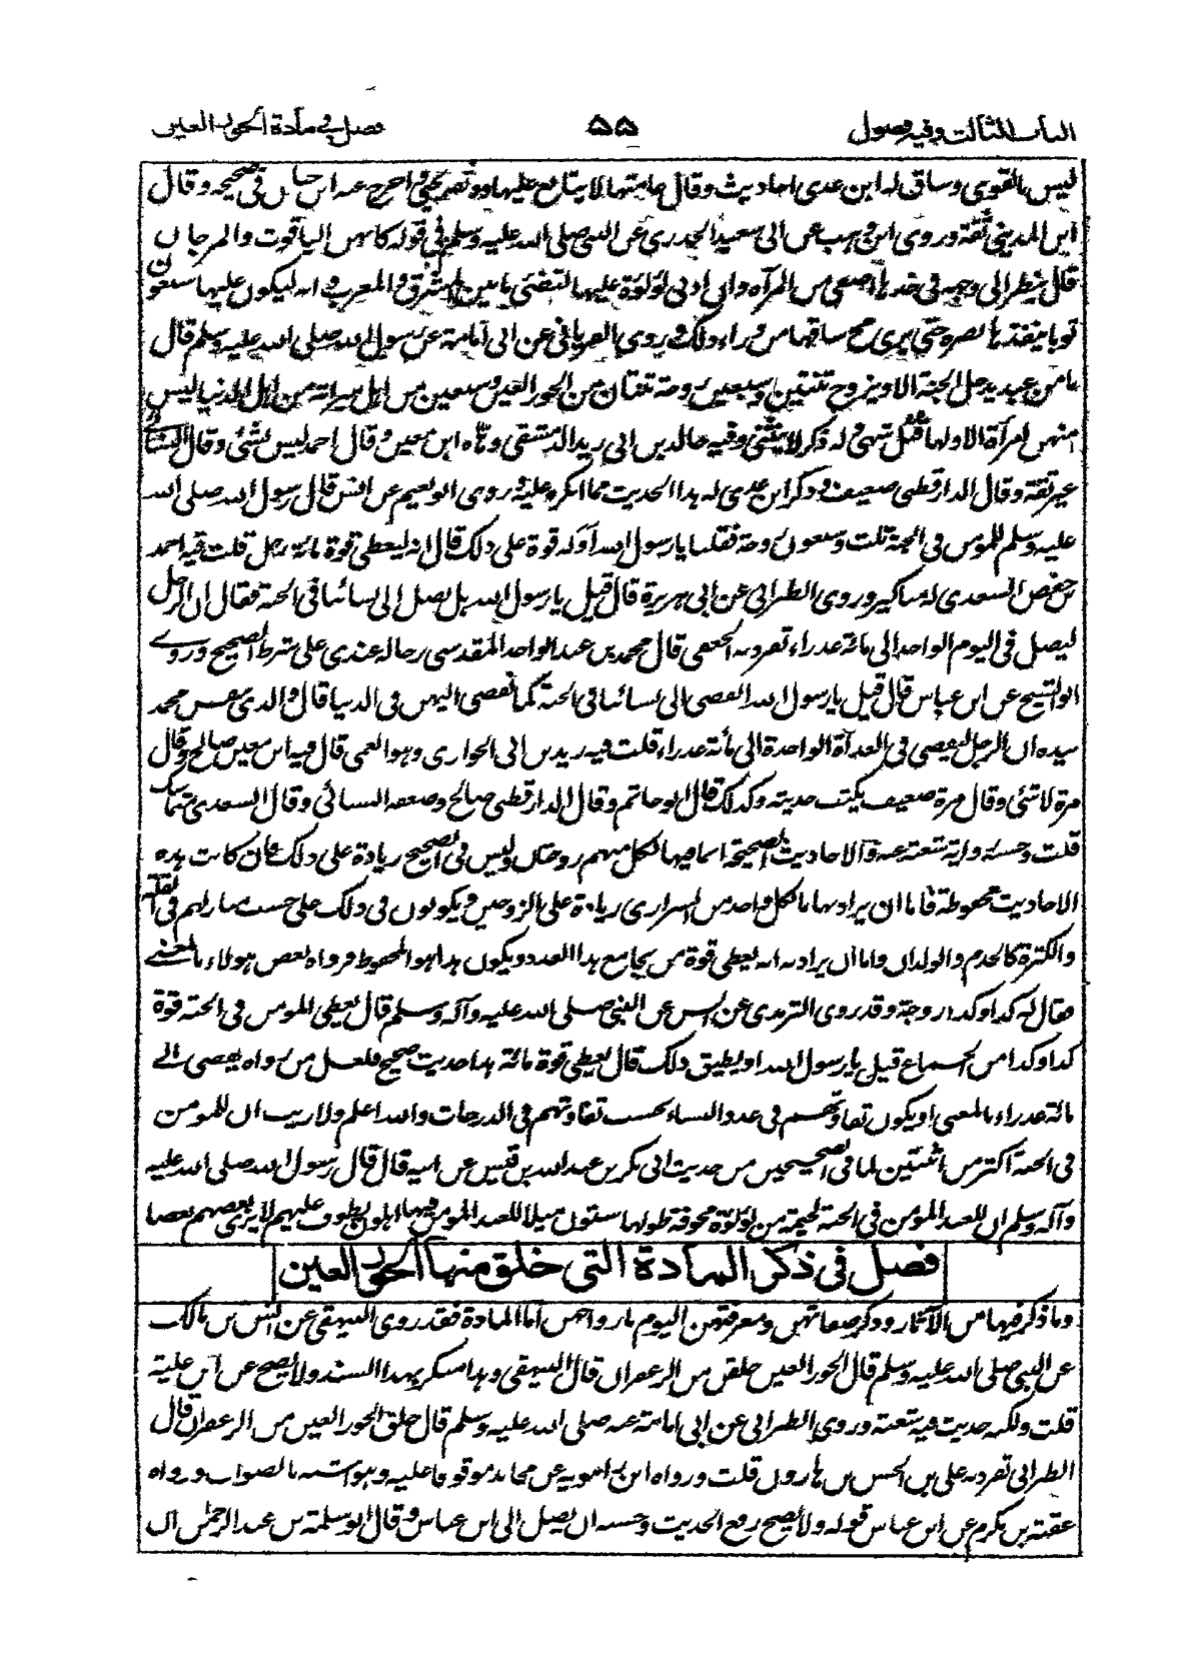 الباب الثالث وفيه فصول ٥٥ فصل في مادة الحور العين
ليس بالقوي وساق له ابن عدي احاديث وقال عامتها لا يتابع عليها ووثقه يحيى واخرج عنه ابن حبان في صحيحه وقال
ابن المديني ثقة وروى ابن وهب عن ابي سعيد الخدري عن النبي صلى الله عليه وسلم في قوله كانهن الياقوت والمرجان
قال ينظر الى وجهه في خدها اصفى من المرآة وان ادنى لؤلؤة عليها لتضئ ما بين المشرق والمغرب وانه ليكون عليها سبعون
ثوبا ينفذها بصره حتى يرى مخ ساقها من وراء ذلك وروى الفريابي عن ابي امامة عن رسول الله صلى الله عليه وسلم قال
ما من عبد يدخل الجنة الا ويزوج ثنتين وسبعين زوجة ثنتان من الحور العين وسبعين من اهل ميراثه من اهل الدنيا ليس
منهن امرأة الا ولها قبل شهي وله ذكر لا ينثني وفيه خالد بن ابي يزيد الدمشقي وهّاه ابن معين وقال احمد ليس بشئ وقال النسائي
غير ثقة وقال الدارقطني ضعيف وذكر ابن عدي له هذا الحديث مما انكره عليه وروى ابو نعيم عن انس قال رسول الله صلى الله
عليه وسلم للمؤمن في الجنة ثلث وسبعون زوجة فقلنا يا رسول الله أوله قوة على ذلك قال انه ليعطى قوة مائة رجل قلت فيه احمد
بن حفص السعدي له مناكير وروى الطبراني عن ابي هريرة قال قيل يا رسول الله هل نصل الى نسائنا في الجنة فقال ان الرجل
ليصل في اليوم الواحد الى مائة عذراء تفرد به الجعفي قال محمد بن عبد الواحد المقدسي رجاله عندي على شرط الصحيح وروى
ابو الشيخ عن ابن عباس قال قيل يا رسول الله انفضي الى نسائنا في الجنة كما نفضي اليهن في الدنيا قال والذي نفس محمد
بيده ان الرجل ليفضي في الغداة الواحدة الى مائة عذراء قلت فيه زيد بن ابي الحواري وهو العمي قال فيه ابن معين صالح وقال
مرة لا شئ وقال مرة ضعيف يكتب حديثه وكذلك قال ابو حاتم وقال الدارقطني صالح وضعفه النسائي وقال السعدي متماسك
قلت وحسبه رواية شعبة عنه والاحاديث الصحيحة انما فيها لكل منهم زوجتان وليس في الصحيح زيادة على ذلك فان كانت هذه
الاحاديث محفوظة فاما ان يراد بها ما لكل واحد من السراري زيادة على الزوجين ويكونون في ذلك على حسب منازلهم في القلة
والكثرة كالخدم والولدان واما ان يراد به انه يعطى قوة من يجامع هذا العدد ويكون هذا هو المحفوظ فرواه بعض هؤلاء بالمعنى
فقال له كذا وكذا زوجة وقد روى الترمذي عن انس عن النبي صلى الله عليه وآله وسلم قال يعطى المؤمن في الجنة قوة
كذا وكذا من الجماع قيل يا رسول الله او يطيق ذلك قال يعطى قوة مائة هذا حديث صحيح فلعل من رواه يفضي الى
مائة عذراء بالمعنى او يكون تفاوتهم في عدد النساء بحسب تفاوتهم في الدرجات والله اعلم ولا ريب ان للمؤمن
في الجنة اكثر من اثنتين لما في الصحيحين من حديث ابي بكر بن عبد الله بن قيس عن ابيه قال قال رسول الله صلى الله عليه
وآله وسلم ان للعبد المؤمن في الجنة لخيمة من لؤلؤة مجوفة طولها ستون ميلا للعبد المؤمن فيها اهلون يطوف عليهم لا يرى بعضهم بعضا
فصل في ذكر المادة التي خلق منها الحور العين
وما ذكر فيها من الآثار وذكر صفاتهن ومعرفتهن اليوم بازواجهن اما المادة فقد روى البيهقي عن انس بن مالك
عن النبي صلى الله عليه وسلم قال الحور العين خلقن من الزعفران قال البيهقي وهذا منكر بهذا السند ولا يصح عن ابن علية
قلت ولكنه حديث فيه شعبة وروى الطبراني عن ابي امامة عنه صلى الله عليه وسلم قال خلق الحور العين من الزعفران قال
الطبراني تفرد به علي بن الحسن بن هارون قلت ورواه ابن راهويه عن مجاهد موقوفا عليه وهو اشبه بالصواب ورواه
عقبة بن مكرم عن ابن عباس قوله ولا يصح رفع الحديث وحسبه ان يصل الى ابن عباس وقال ابو سلمة بن عبد الرحمن ان